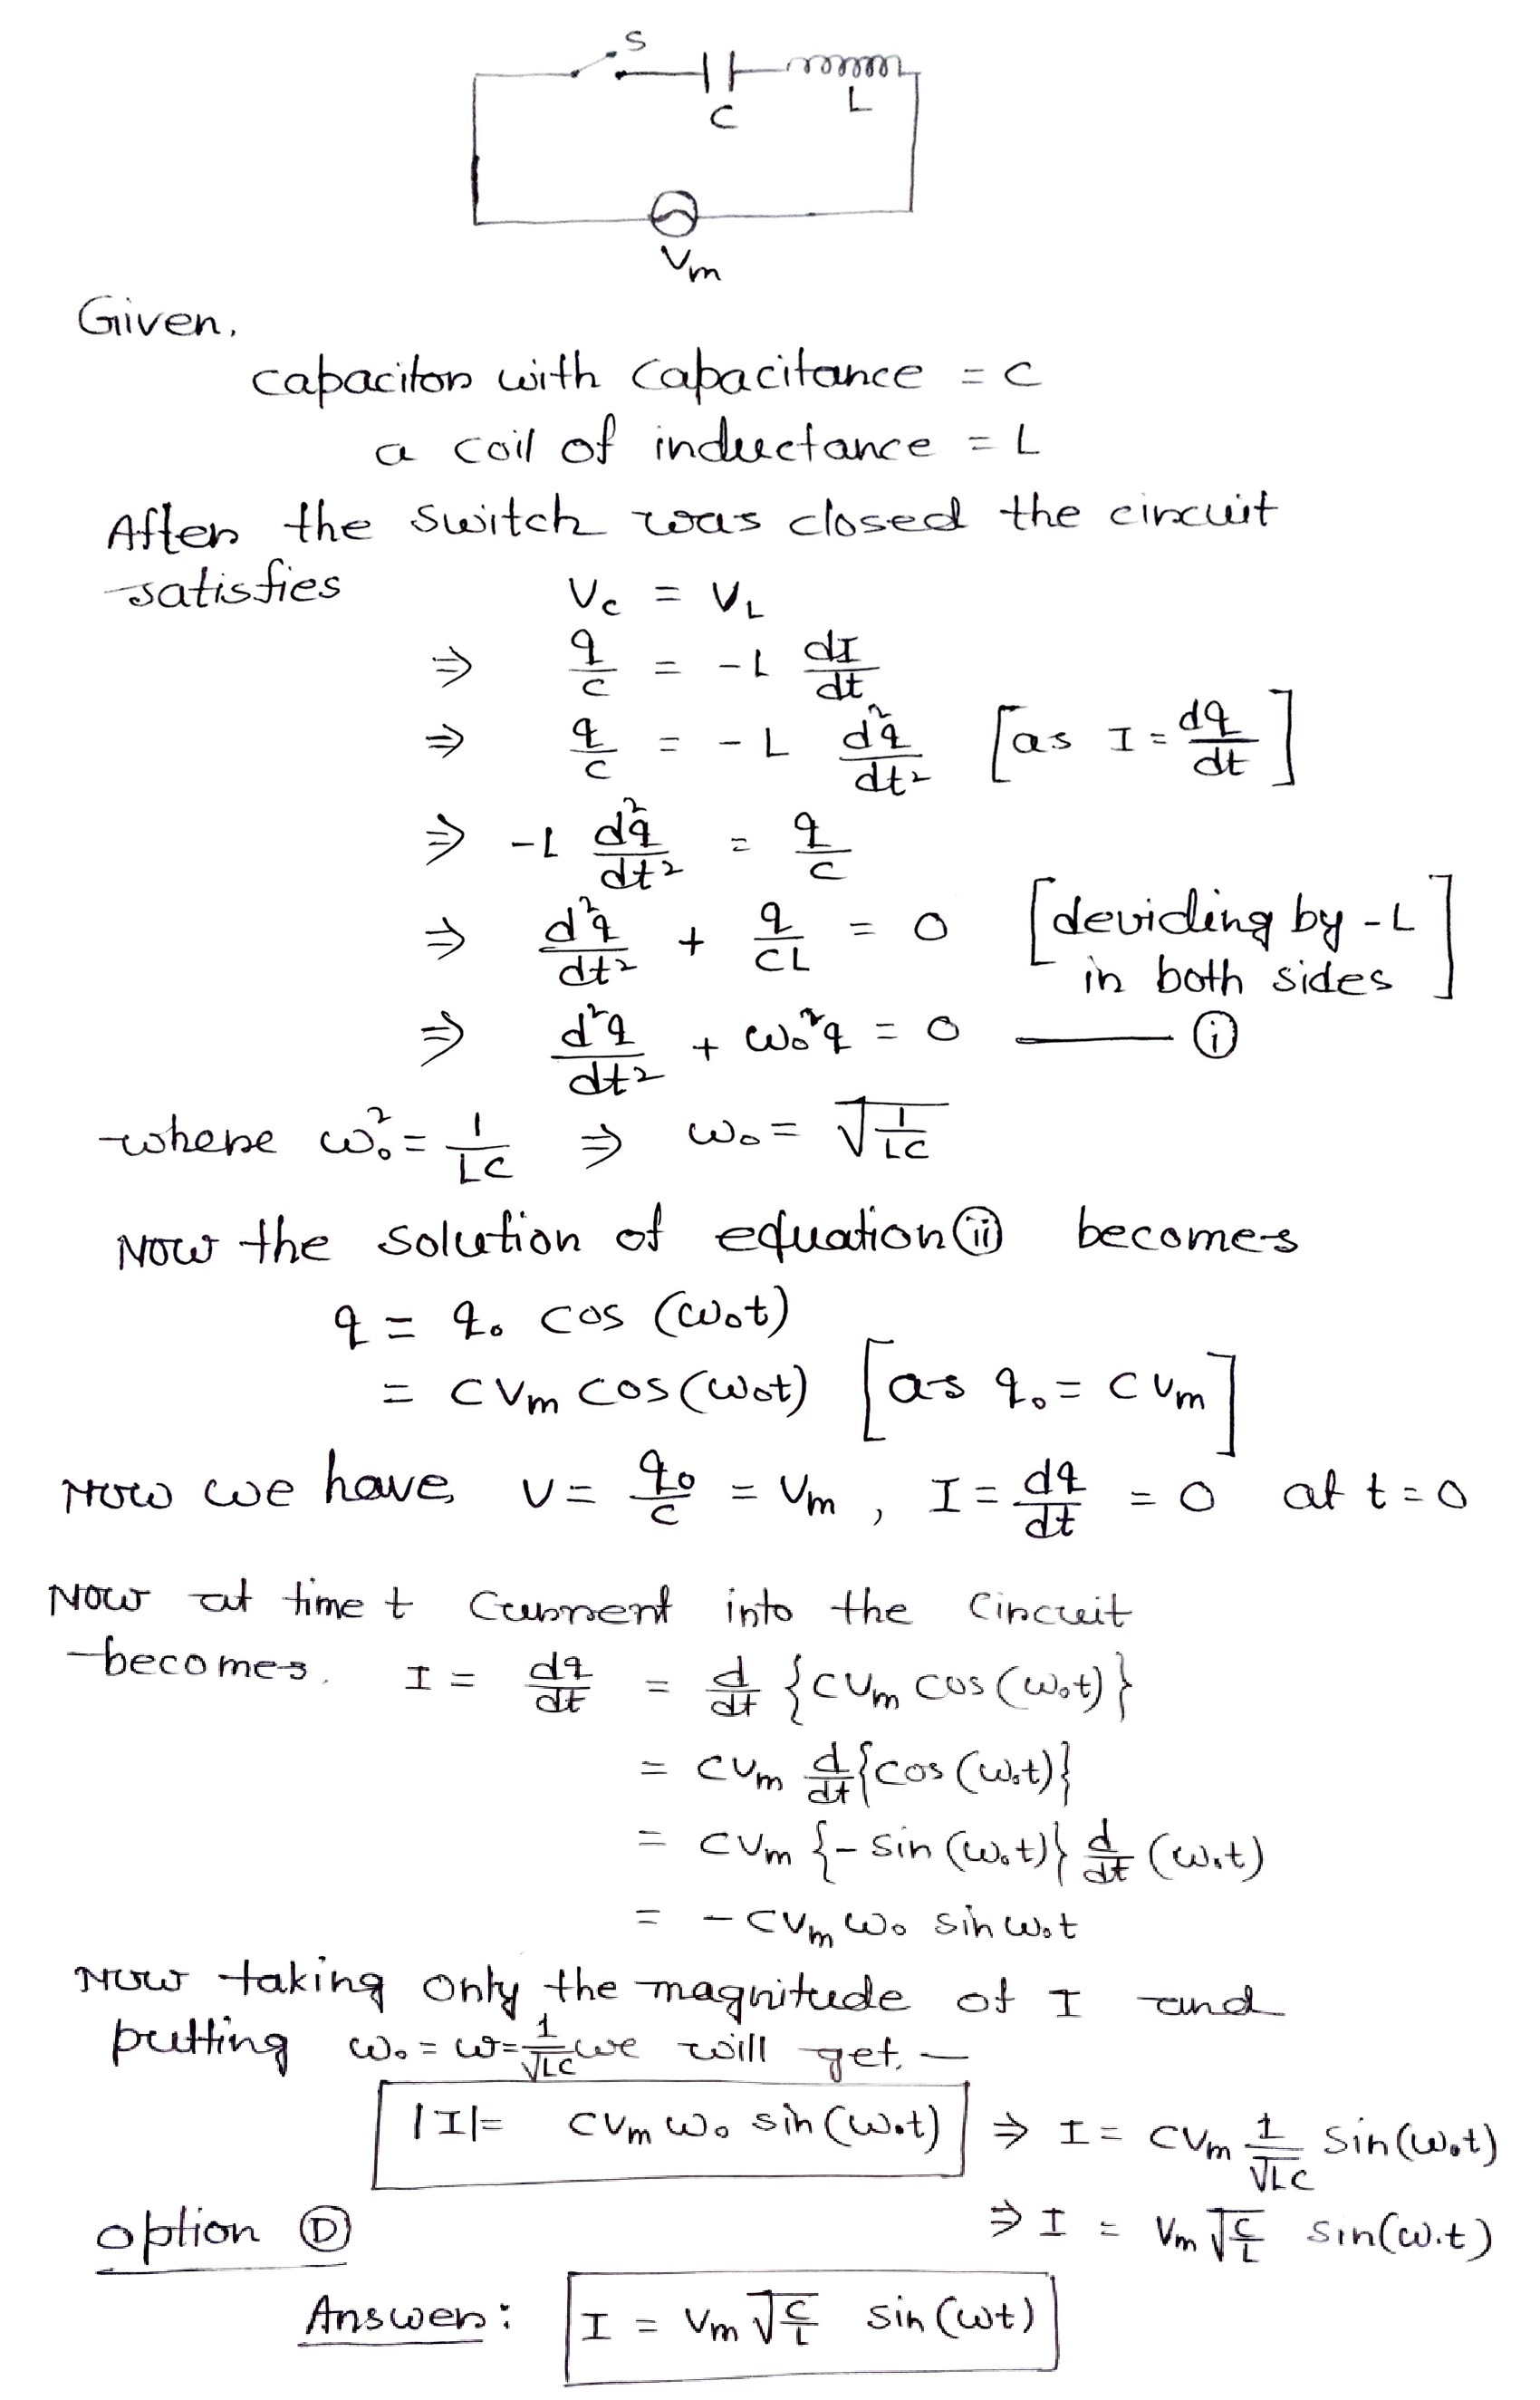 S
C
L
Vm
Given,
capacitor with capacitance = C
a coil of inductance = L
After the switch was closed the circuit
satisfies Vc = VL
⇒ q/C = -L dI/dt
⇒ q/C = -L d²q/dt² [as I = dq/dt]
⇒ -L d²q/dt² = q/C
⇒ d²q/dt² + q/CL = 0 [deviding by -L in both sides]
⇒ d²q/dt² + ω₀²q = 0 —— (i)
where ω₀² = 1/LC ⇒ ω₀ = √(1/LC)
Now the solution of equation (ii) becomes
q = q₀ cos (ω₀t)
= CVm cos(ω₀t) [as q₀ = CVm]
Now we have, V = q₀/C = Vm, I = dq/dt = 0 at t = 0
Now at time t current into the circuit
becomes. I = dq/dt = d/dt {CVm cos(ω₀t)}
= CVm d/dt {cos(ω₀t)}
= CVm {-sin(ω₀t)} d/dt (ω₀t)
= -CVm ω₀ sin ω₀t
Now taking only the magnitude of I and
putting ω₀ = ω = 1/√LC we will get, —
|I| = CVm ω₀ sin(ω₀t) ⇒ I = CVm 1/√LC sin(ω₀t)
⇒ I = Vm √(C/L) sin(ω₀t)
option (D)
Answer: I = Vm √(C/L) sin(ωt)